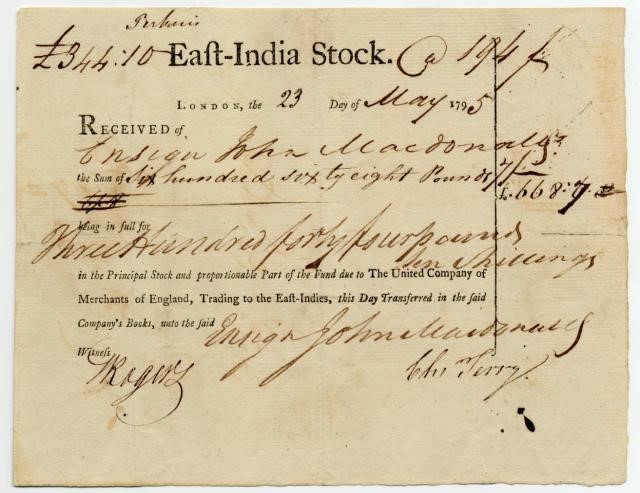 £344:10 Eaſt-India Stock. @ 194
London, the 23 Day of May 1795
Received of
Ensign John Macdonald
the Sum of Six hundred sixty eight Pounds 7/
£.668:7
being in full for
Three Hundred forty four pounds
ten shillings
in the Principal Stock and proportionable Part of the Fund due to The United Company of
Merchants of England, Trading to the Eaſt-Indies, this Day Transferred in the said
Company's Books, unto the said Ensign John Macdonald
Witneſs
Rogers
Chs Terry.